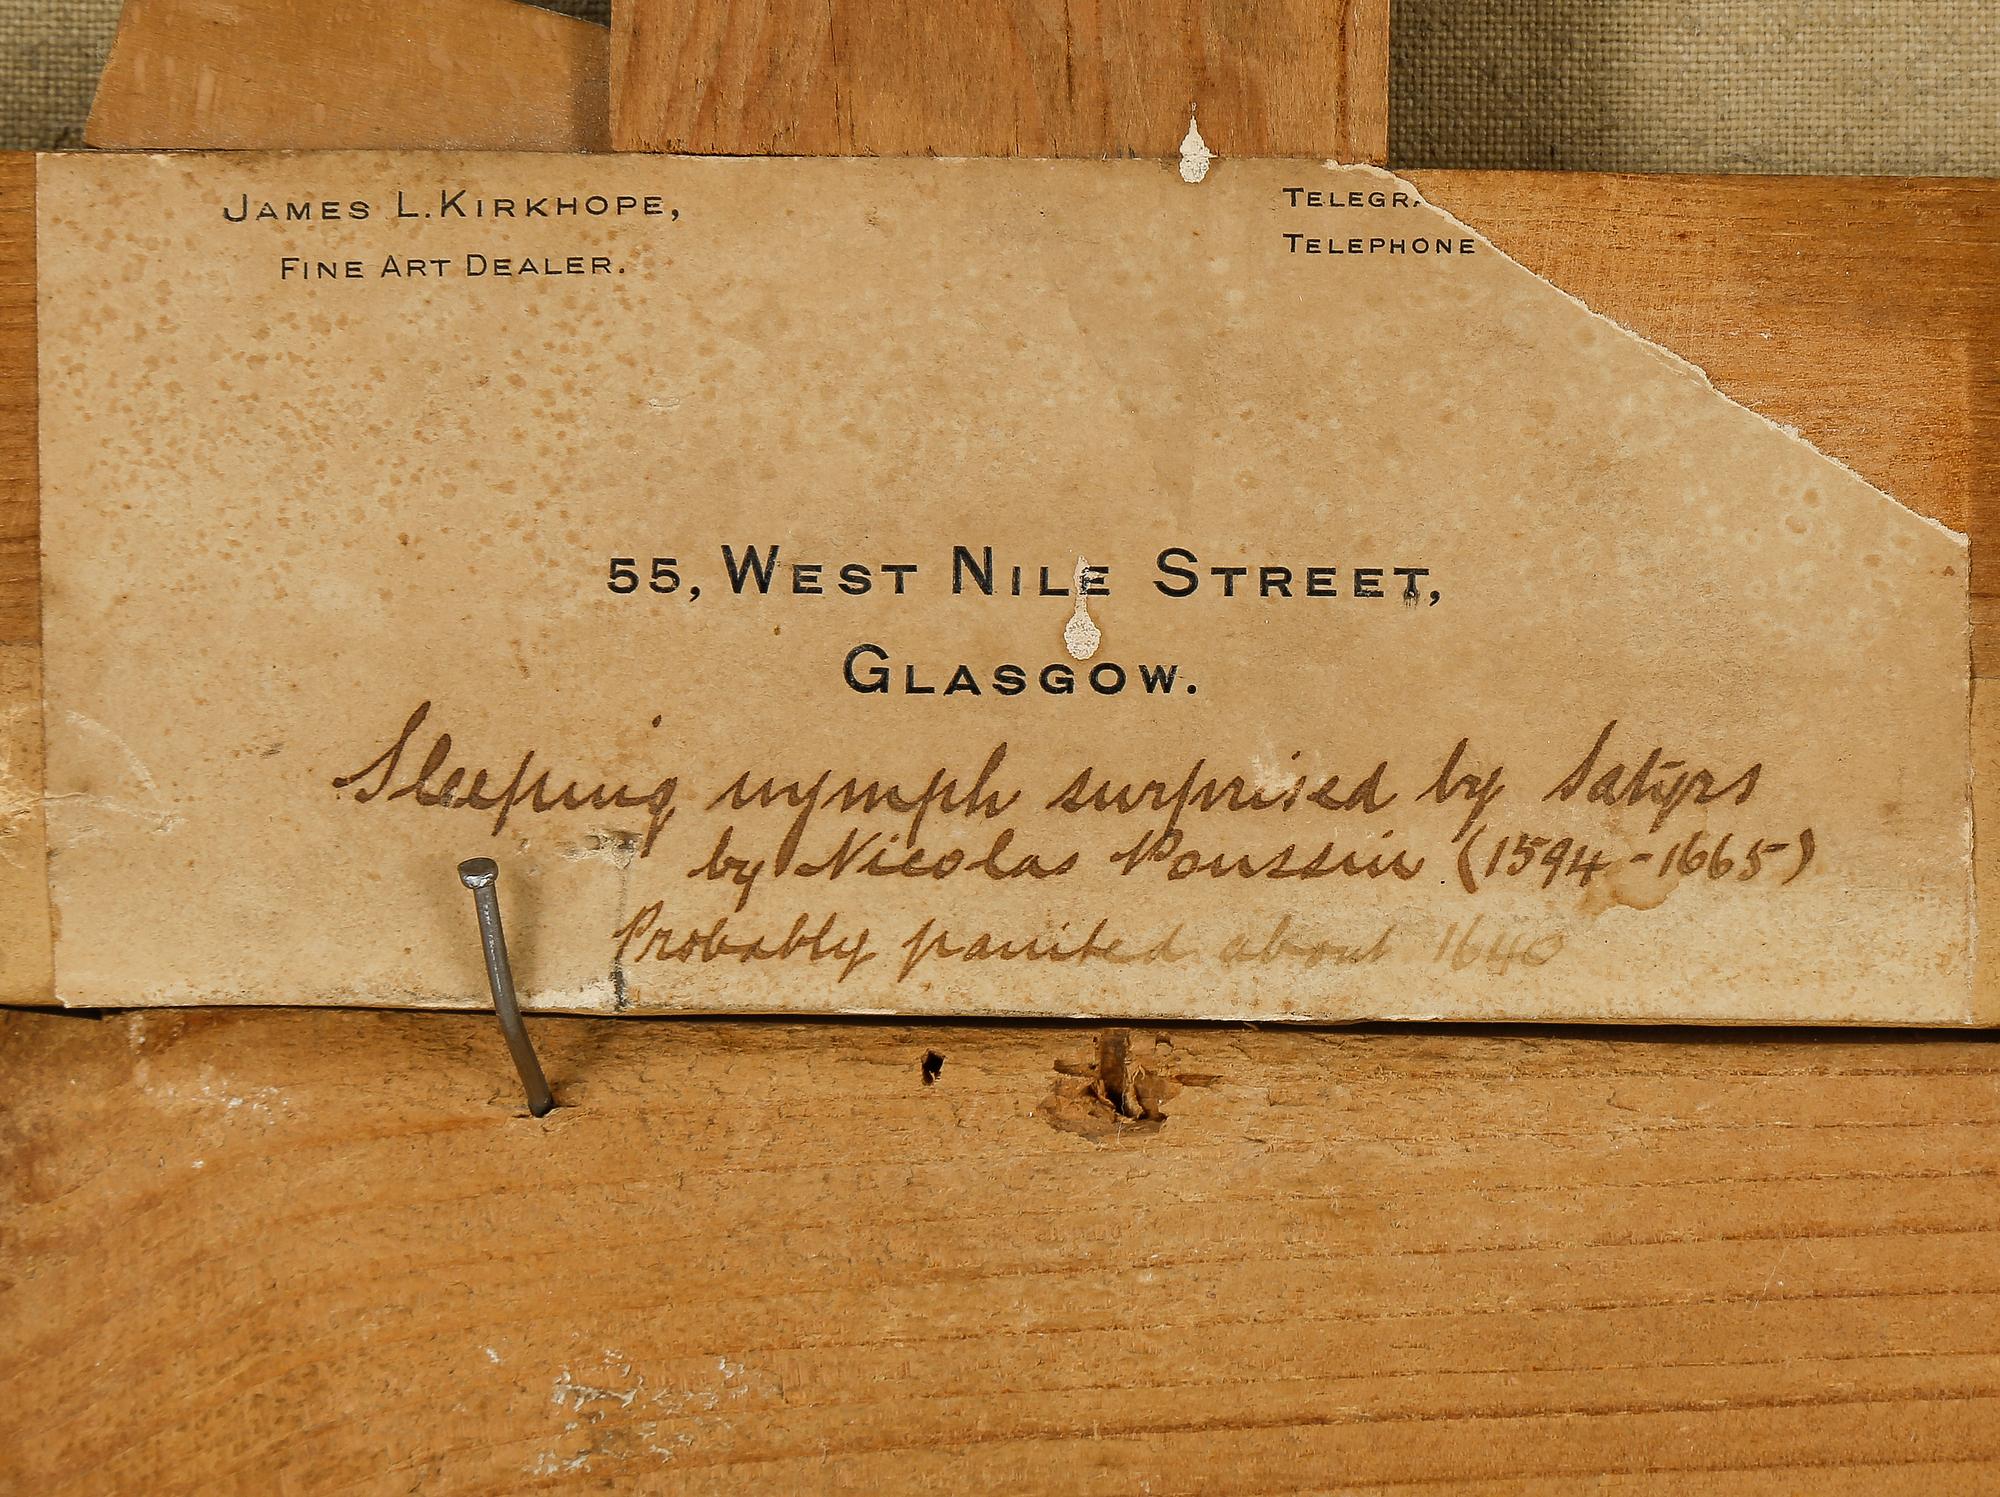 James L. Kirkhope,
Fine Art Dealer.
Telegra
Telephone
55, West Nile Street,
Glasgow.
Sleeping nymph surprised by Satyrs
by Nicolas Poussin (1594-1665)
Probably painted about 1640